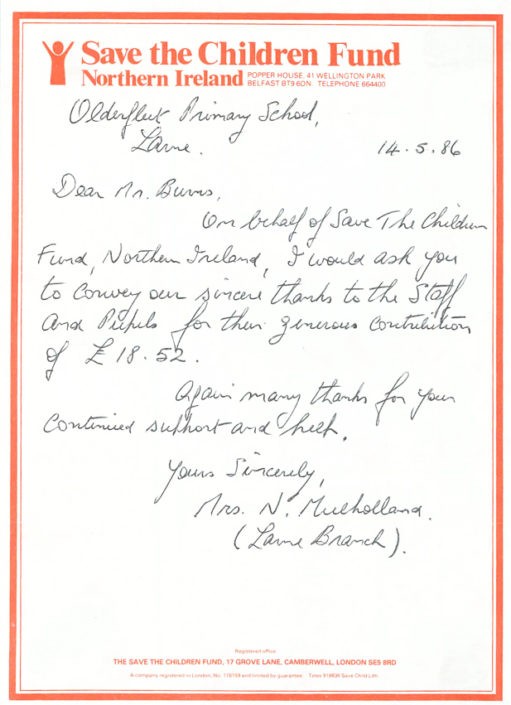 Save the Children Fund
Northern Ireland POPPER HOUSE, 41 WELLINGTON PARK
BELFAST BT9 6DN. TELEPHONE 664400
Olderfleet Primary School,
Larne.
14.5.86
Dear Mr. Burns,
On behalf of Save The Children
Fund, Northern Ireland, I would ask you
to convey our sincere thanks to the Staff
and Pupils for their generous contribution
of £18.52.
Again many thanks for your
continued support and help.
Yours Sincerely,
Mrs. N. Mulholland.
(Larne Branch).
Registered office
THE SAVE THE CHILDREN FUND, 17 GROVE LANE, CAMBERWELL, LONDON SE5 8RD
A company registered in London, No. and limited by guarantee. Telex Save Child Ldn